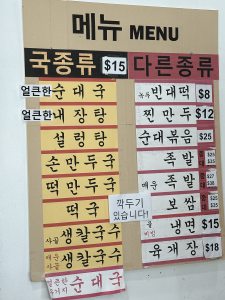 메뉴 MENU
국종류 $15
얼큰한 순대국
얼큰한 내장탕
설렁탕
손만두국
떡만두국
떡국
사골 생칼국수
매운 사골 생칼국수
얼큰한 우거지 순대국
다른종류
녹두 빈대떡 $8
찐만두 $12
순대볶음 $25
족발
매운 족발
보쌈
물 비빔 냉면 $15
육개장 $18
깍두기
있습니다!